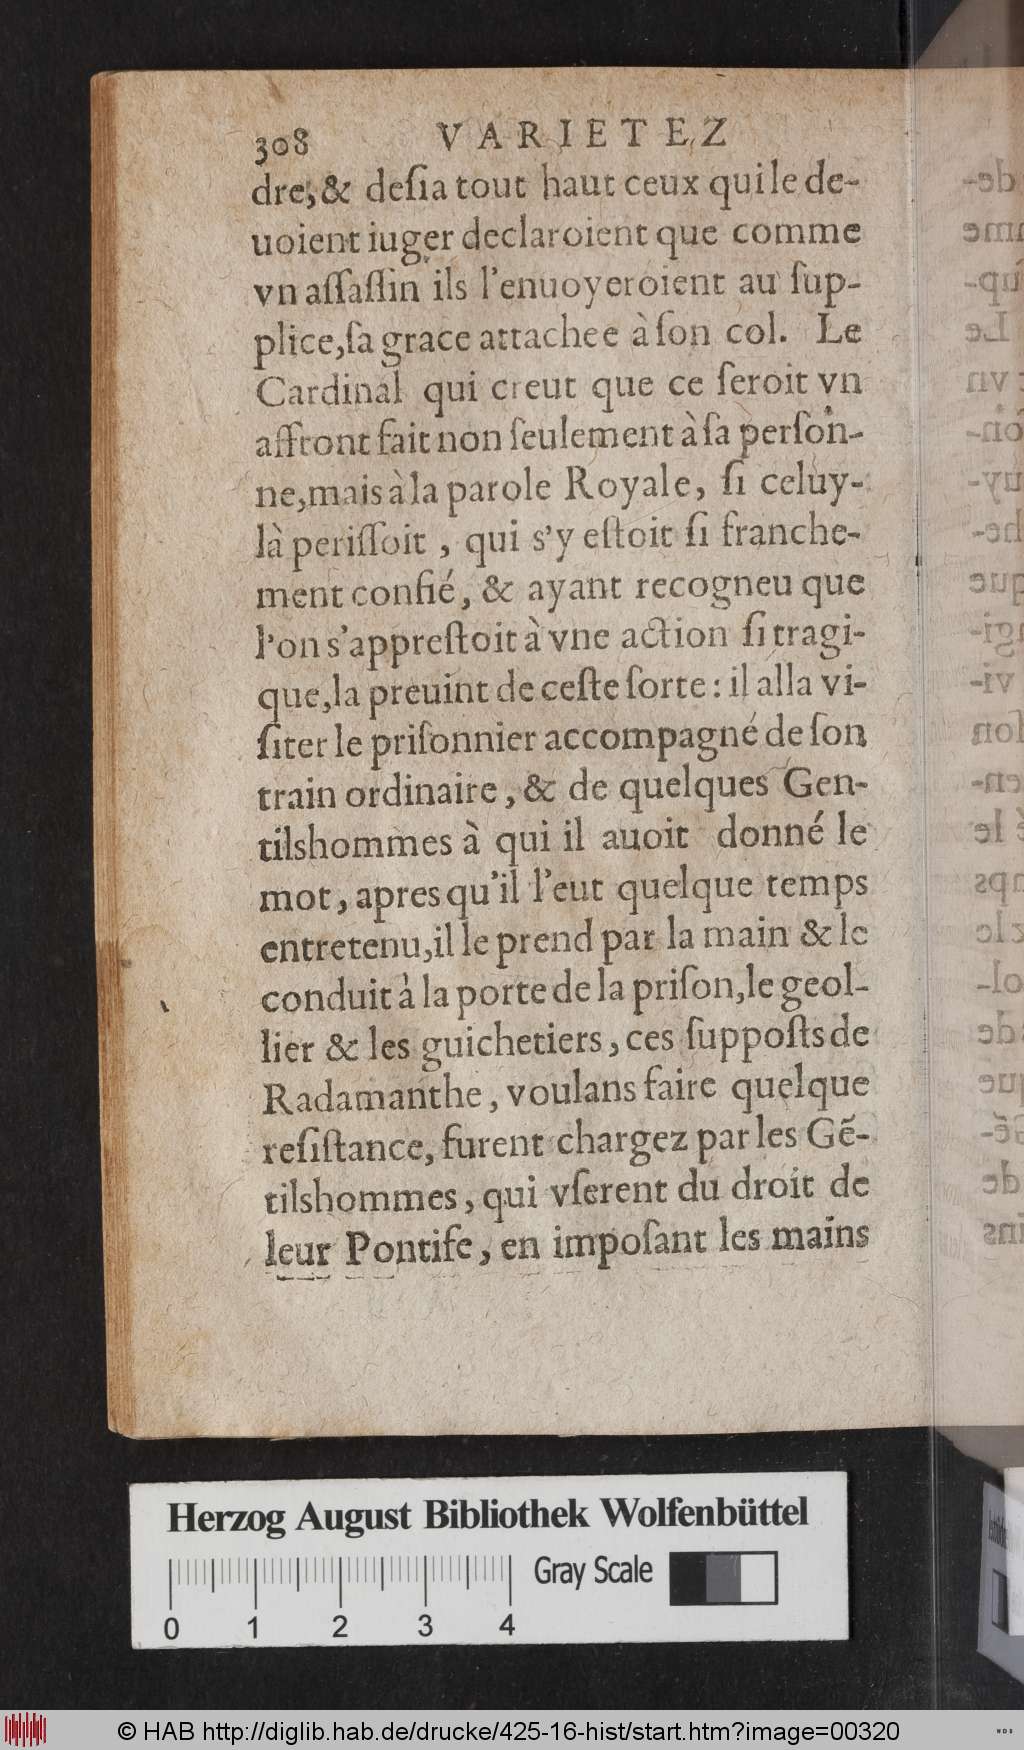 308 VARIETEZ
dre, & deſia tout haut ceux qui le de-
uoient iuger declaroient que comme
vn aſſaſſin ils l'enuoyeroient au ſup-
plice, ſa grace attachee à ſon col. Le
Cardinal qui creut que ce ſeroit vn
affront fait non ſeulement à ſa perſon-
ne, mais à la parole Royale, ſi celuy-
là periſſoit, qui s'y eſtoit ſi franche-
ment confié, & ayant recogneu que
l'on s'appreſtoit à vne action ſi tragi-
que, la preuint de ceſte ſorte: il alla vi-
ſiter le priſonnier accompagné de ſon
train ordinaire, & de quelques Gen-
tilshommes à qui il auoit donné le
mot, apres qu'il l'eut quelque temps
entretenu, il le prend par la main & le
conduit à la porte de la priſon, le geol-
lier & les guichetiers, ces ſuppoſts de
Radamanthe, voulans faire quelque
reſiſtance, furent chargez par les Gẽ-
tilshommes, qui vſerent du droit de
leur Pontife, en impoſant les mains
Herzog August Bibliothek Wolfenbüttel
Gray Scale
0 1 2 3 4
© HAB http://diglib.hab.de/drucke/425-16-hist/start.htm?image=00320